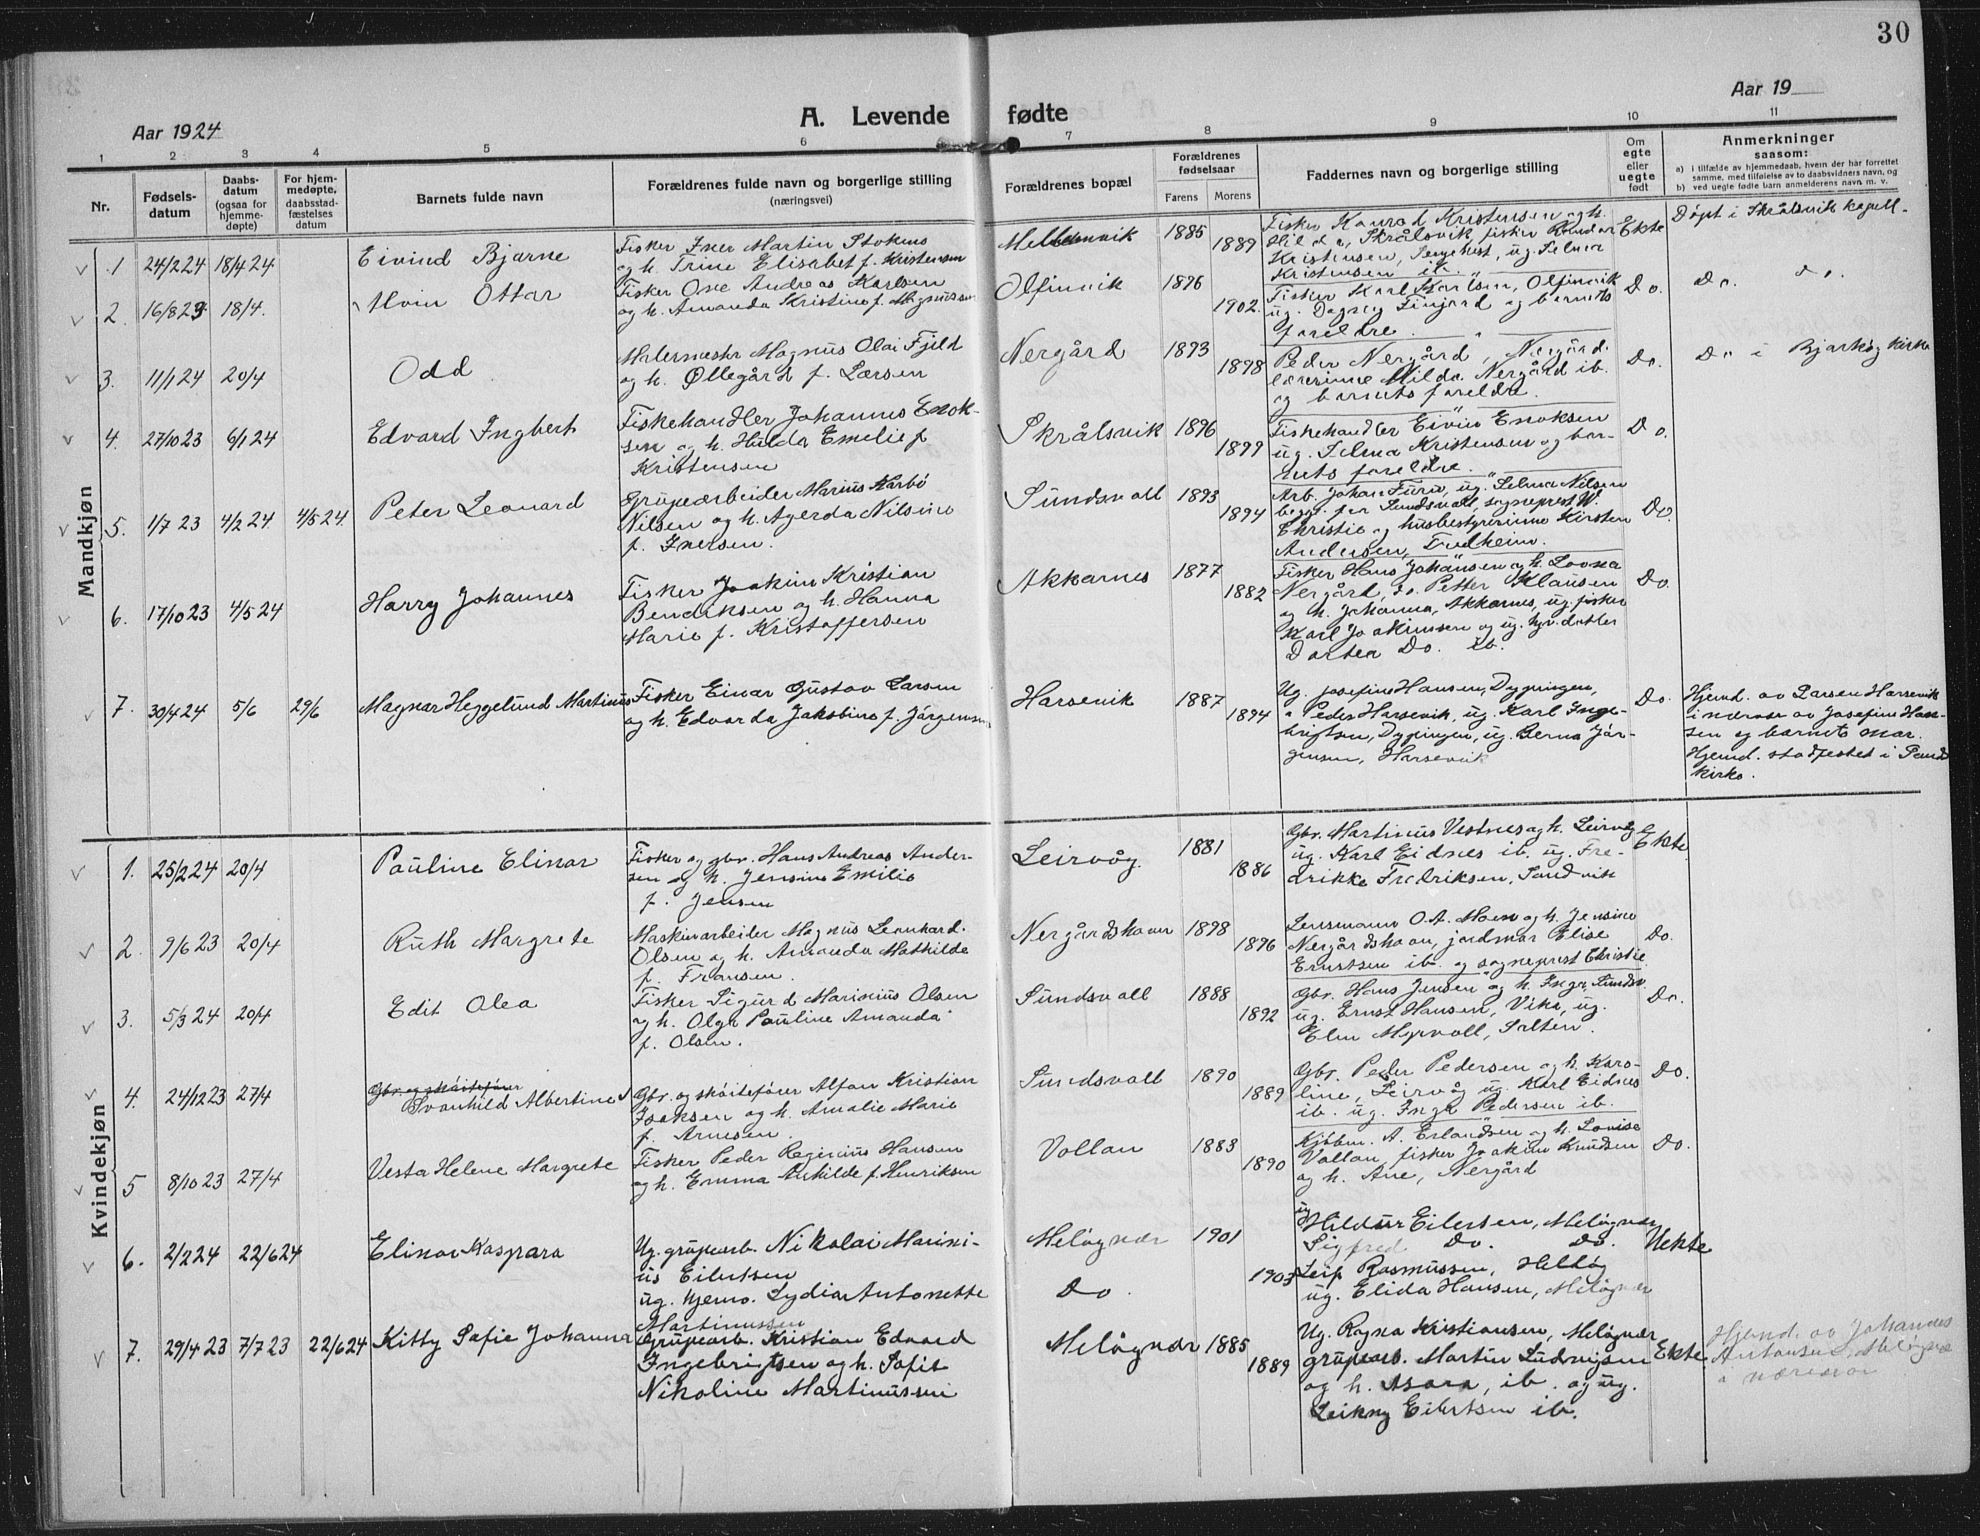 30
Aar 1924
A. Levende fødte
Aar 19
1 2 3 4 5 6 7 8 9 10 11
Nr.
Fødsels-
datum
Daabs-
datum
(ogsaa for
hjemme-
døpte)
For hjem-
medøpte,
daabsstad-
fæstelses
datum
Barnets fulde navn
Forældrenes fulde navn og borgerlige stilling
(næringsvei)
Forældrenes bopæl
Forældrenes
fødselsaar
Farens Morens
Faddernes navn og borgerlige stilling
Om
egte
eller
uegte
født
Anmerkninger
saasom:
a) i tilfælde av hjemmedaab, hvem der har forrettet
samme, med tilføielse av to daabsvidners navn, og
b) ved uegte fødte barn anmelderens navn m. v.
Mandkjøn
1 24/2 24 18/4 24
Eivind Bjarne
Fisker Iver Martin Stoknes
og h. Trine Elisabet f. Kristensen
1885
1889
Fisker Konrad Kristensen og h.
Hilda, Skrålsvik, fisker
Kristensen, ug. Selma
Kristensen ib.
Ekte
Døpt i Skrålsvik kapell.
2. 16/8 23 18/4.
Ottar
Fisker Ove Andreas Karlsen
og h. Amanda Kristine f. Magnussen
Olfinvik
1896
1902.
Fisker Karl Karlsen, Olfinvik
ug. Dagny Finjord og barnets
foreldre.
Do.
Do. Do.
3. 11/1 24 20/4
Odd
Malermester Magnus Olai Fjeld
og h. Øllegård f. Larsen
Nergård
1893
1898
Peder Nergård, Nergård
lærerinne Milda Nergård ib.
og barnets foreldre.
Do.
Do i Bjarkøy kirke
4. 27/10 23 6/1 24
Edvard Ingbert
Fiskehandler Johannes Enok-
sen og h. Hulda Emelie f.
Kristensen
Skrålsvik
1896
1899
Fiskehandler Eivin Enoksen
ug. Selma Kristensen og bar-
nets foreldre.
Do.
5. 1/7 23 4/2 24 4/5 24
Peter Leonard
Grupearbeider Marius Karbø
Nilsen og h. Agerda Nilsine
f. Iversen.
Sundsvall
1893
1894
Arb. Johan Furu, ug. Selma Nilsen
begge fra Sundsvall, sogneprest W.
Christie og husbestyrerinne Kirsten
Andersen, Trudheim.
Do.
6. 17/10 23 4/5 24
Harry Johannes
Fisker Joakim Kristian
Bendiksen og h. Hanna
Marie f. Kristoffersen
Akkarnes
1877
1882
Fisker Hans Johansen og h. Lovisa
Nergård, do. Petter Klausen
og h. Johanna, Akkarnes, ug. fisker
Karl Joakimsen og ug. gv. datter
Dortea Do. ib.
Do.
7. 30/4 24 5/6 29/6
Magnar Heggelund Martinus
Fisker Einar Gustav Larsen
og h. Edvarda Jakobine f. Jørgensen
Harsevik
1887
1894
Ug. Josefine Hansen, Dypingen,
Peder Harsevik, ug. Karl Inge-
brigtsen, Dypingen, ug. Berna Jør-
gensen, Harsevik
Do.
Hjemd. av Larsen Harsevik
i nærvær av Josefine Han-
sen og barnets mor.
Hjemd. stadfestet i Sand
kirke.
Kvindekjøn
1. 25/2 24 20/4
Pauline Elinor
Fisker og gbr. Hans Andreas Ander-
sen og h. Jensine Emilie
f. Jensen
Leirvåg.
1881
1886
Gbr. Martinius Vestnes og h. Leirvåg
ug. Karl Eidnes ib. ug. Fre-
drikke Fredriksen, Sandvik
Ekte
2. 9/6 23 20/4
Ruth Margrete
Maskinarbeider Magnus Leonhard.
Olsen og h. Amanda Mathilde
f. Fransen.
Nergårdshavn
1898
1896
Lensmann O. A. Moen og h. Jensine
Nergårdshavn, jordmor Elise
Ernstsen ib. og sogneprest Christie.
Do.
3. 5/3 24 20/4
Edit Olea
Fisker Sigurd Marinius Olsen
og h. Olga Pauline Amanda
f. Olsen.
Sundsvall
1888
1892
Gbr. Hans Jensen og h. Inga, Sundsv.
ug. Ernst Hansen, Vika, ug.
Elen Myrvoll, Salten.
Do.
4. 24/12 23 27/4
Gbr. og skøitefører
Svanhild Albertine
Gbr. og skøitefører Alfon Kristian
Isaksen og h. Amalie Marie
f. Arnesen.
Sundsvall
1890
1889
Gbr. Peder Pedersen og h. Karo-
line, Leirvåg ug. Karl Eidnes
ib. ug. Inga Pedersen ib.
Do.
5 8/10 23 27/4
Vesta Helene Margrete
Fisker Peder Reginius Hansen
og h. Emma Ankilde f. Henriksen
Vollan
1883
1890
Kjøbm. A. Erlandsen og h. Lovise
Vollan, fisker Joakim Knudsen
og h. Ane, Nergård
Do.
6. 2/2 24 22/6 24
Elinor Kaspara
Ug. grupearb. Nikolai Marini-
us Eilertsen
ug. hjemv. Lydia Antonette
Martinussen
Meløyvær
Do.
1901
1903
ug
Hildur Eilertsen, Meløyvær
Sigfred Do. Do.
Leif Rasmussen, Helløy
ug. Elida Hansen, Meløyvær
Uekte
7. 29/4 23 7/7 23 22/6 24
Kitty Sofie Johanna
Grupearb. Kristian Edvard
Ingebrigtsen og h. Sofie
Nikoline Martinussen
Meløyvær
1885
1889
Ug. Ragna Kristiansen, Meløyvær
grupearb. Martin Ludvigsen
og h. Asara, ib. og ug.
Leikny Eilertsen ib.
Ekte
Hjemd. av Johannes
Antonsen Meløyvær
i nærvær av